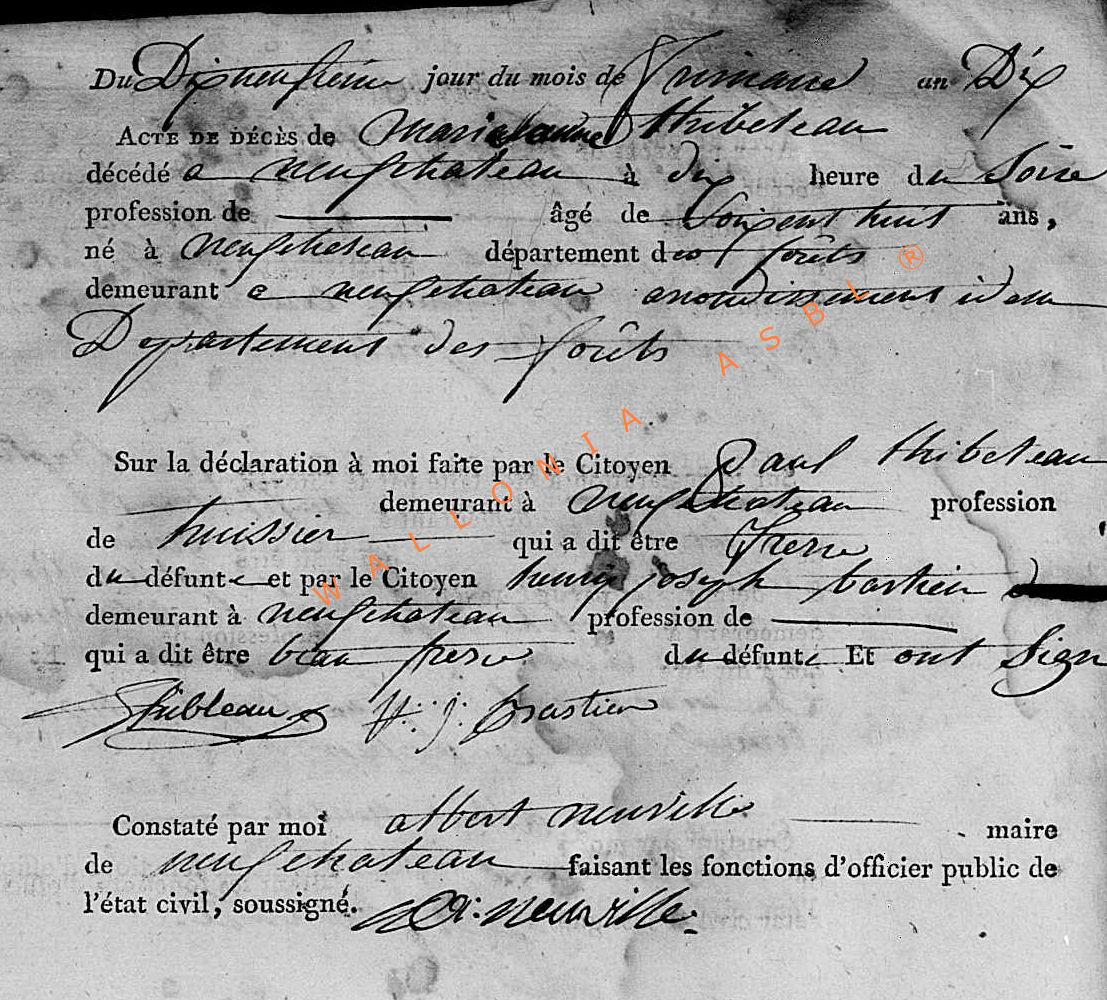 Du Dixneufieme jour du mois de frimaire an Dix
ACTE DE DÉCÈS de marie thibeteau
décédé a neufchateau à dix heure du Soire
profession de âgé de Soixent huit ans,
né à neufchateau département des forêts
demeurant a neufchateau arrondissement idem
Departement des forêts
Sur la déclaration à moi faite par le Citoyen paul thibeteau
demeurant à neufchateau profession
de huissier qui a dit être frere
du défunte et par le Citoyen henry joseph bastien
demeurant à neufchateau profession de
qui a dit être beau frere du défunte Et ont Sign
Thibleau H: j: Bastien
Constaté par moi albert neuville maire
de neufchateau faisant les fonctions d'officier public de
l'état civil, soussigné. A: neuville.
WALLONIA ASBL ®